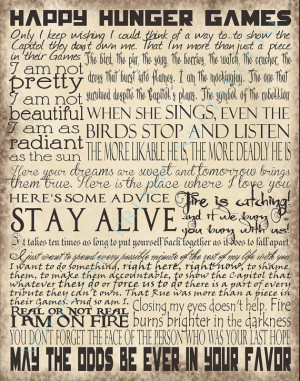 HAPPY HUNGER GAMES
Only I keep wishing I could think of a way to..to show the
Capitol they don't own me. That I'm more than just a piece
in their Games
The bird, the pin, the song, the berries, the watch, the cracker, the
dress that burst into flames. I am the mockingjay. The one that
survived despite the Capitol's plans. The symbol of the rebellion
I am not
pretty
I am not
beautiful
I am as
radiant
as the sun
WHEN SHE SINGS, EVEN THE
BIRDS STOP AND LISTEN
THE MORE LIKABLE HE IS, THE MORE DEADLY HE IS
Here your dreams are sweet and tomorrow brings
them true. Here is the place where I love you
HERE'S SOME ADVICE
STAY ALIVE
Fire is catching!
and if we burn
you burn with us!
it takes ten times as long to put yourself back together as it does to fall apart
I just want to spend every possible minute of the rest of my life with you
I want to do something, right here, right now, to shame
them, to make them accountable, to show the Capitol that
whatever they do or force us to do there is a part of every
tribute they can't own. That Rue was more than a piece in
their Games. And so am I.
REAL OR NOT REAL
I AM ON FIRE
Closing my eyes doesn't help. Fire
burns brighter in the darkness
YOU DON'T FORGET THE FACE OF THE PERSON WHO WAS YOUR LAST HOPE
MAY THE ODDS BE EVER IN YOUR FAVOR